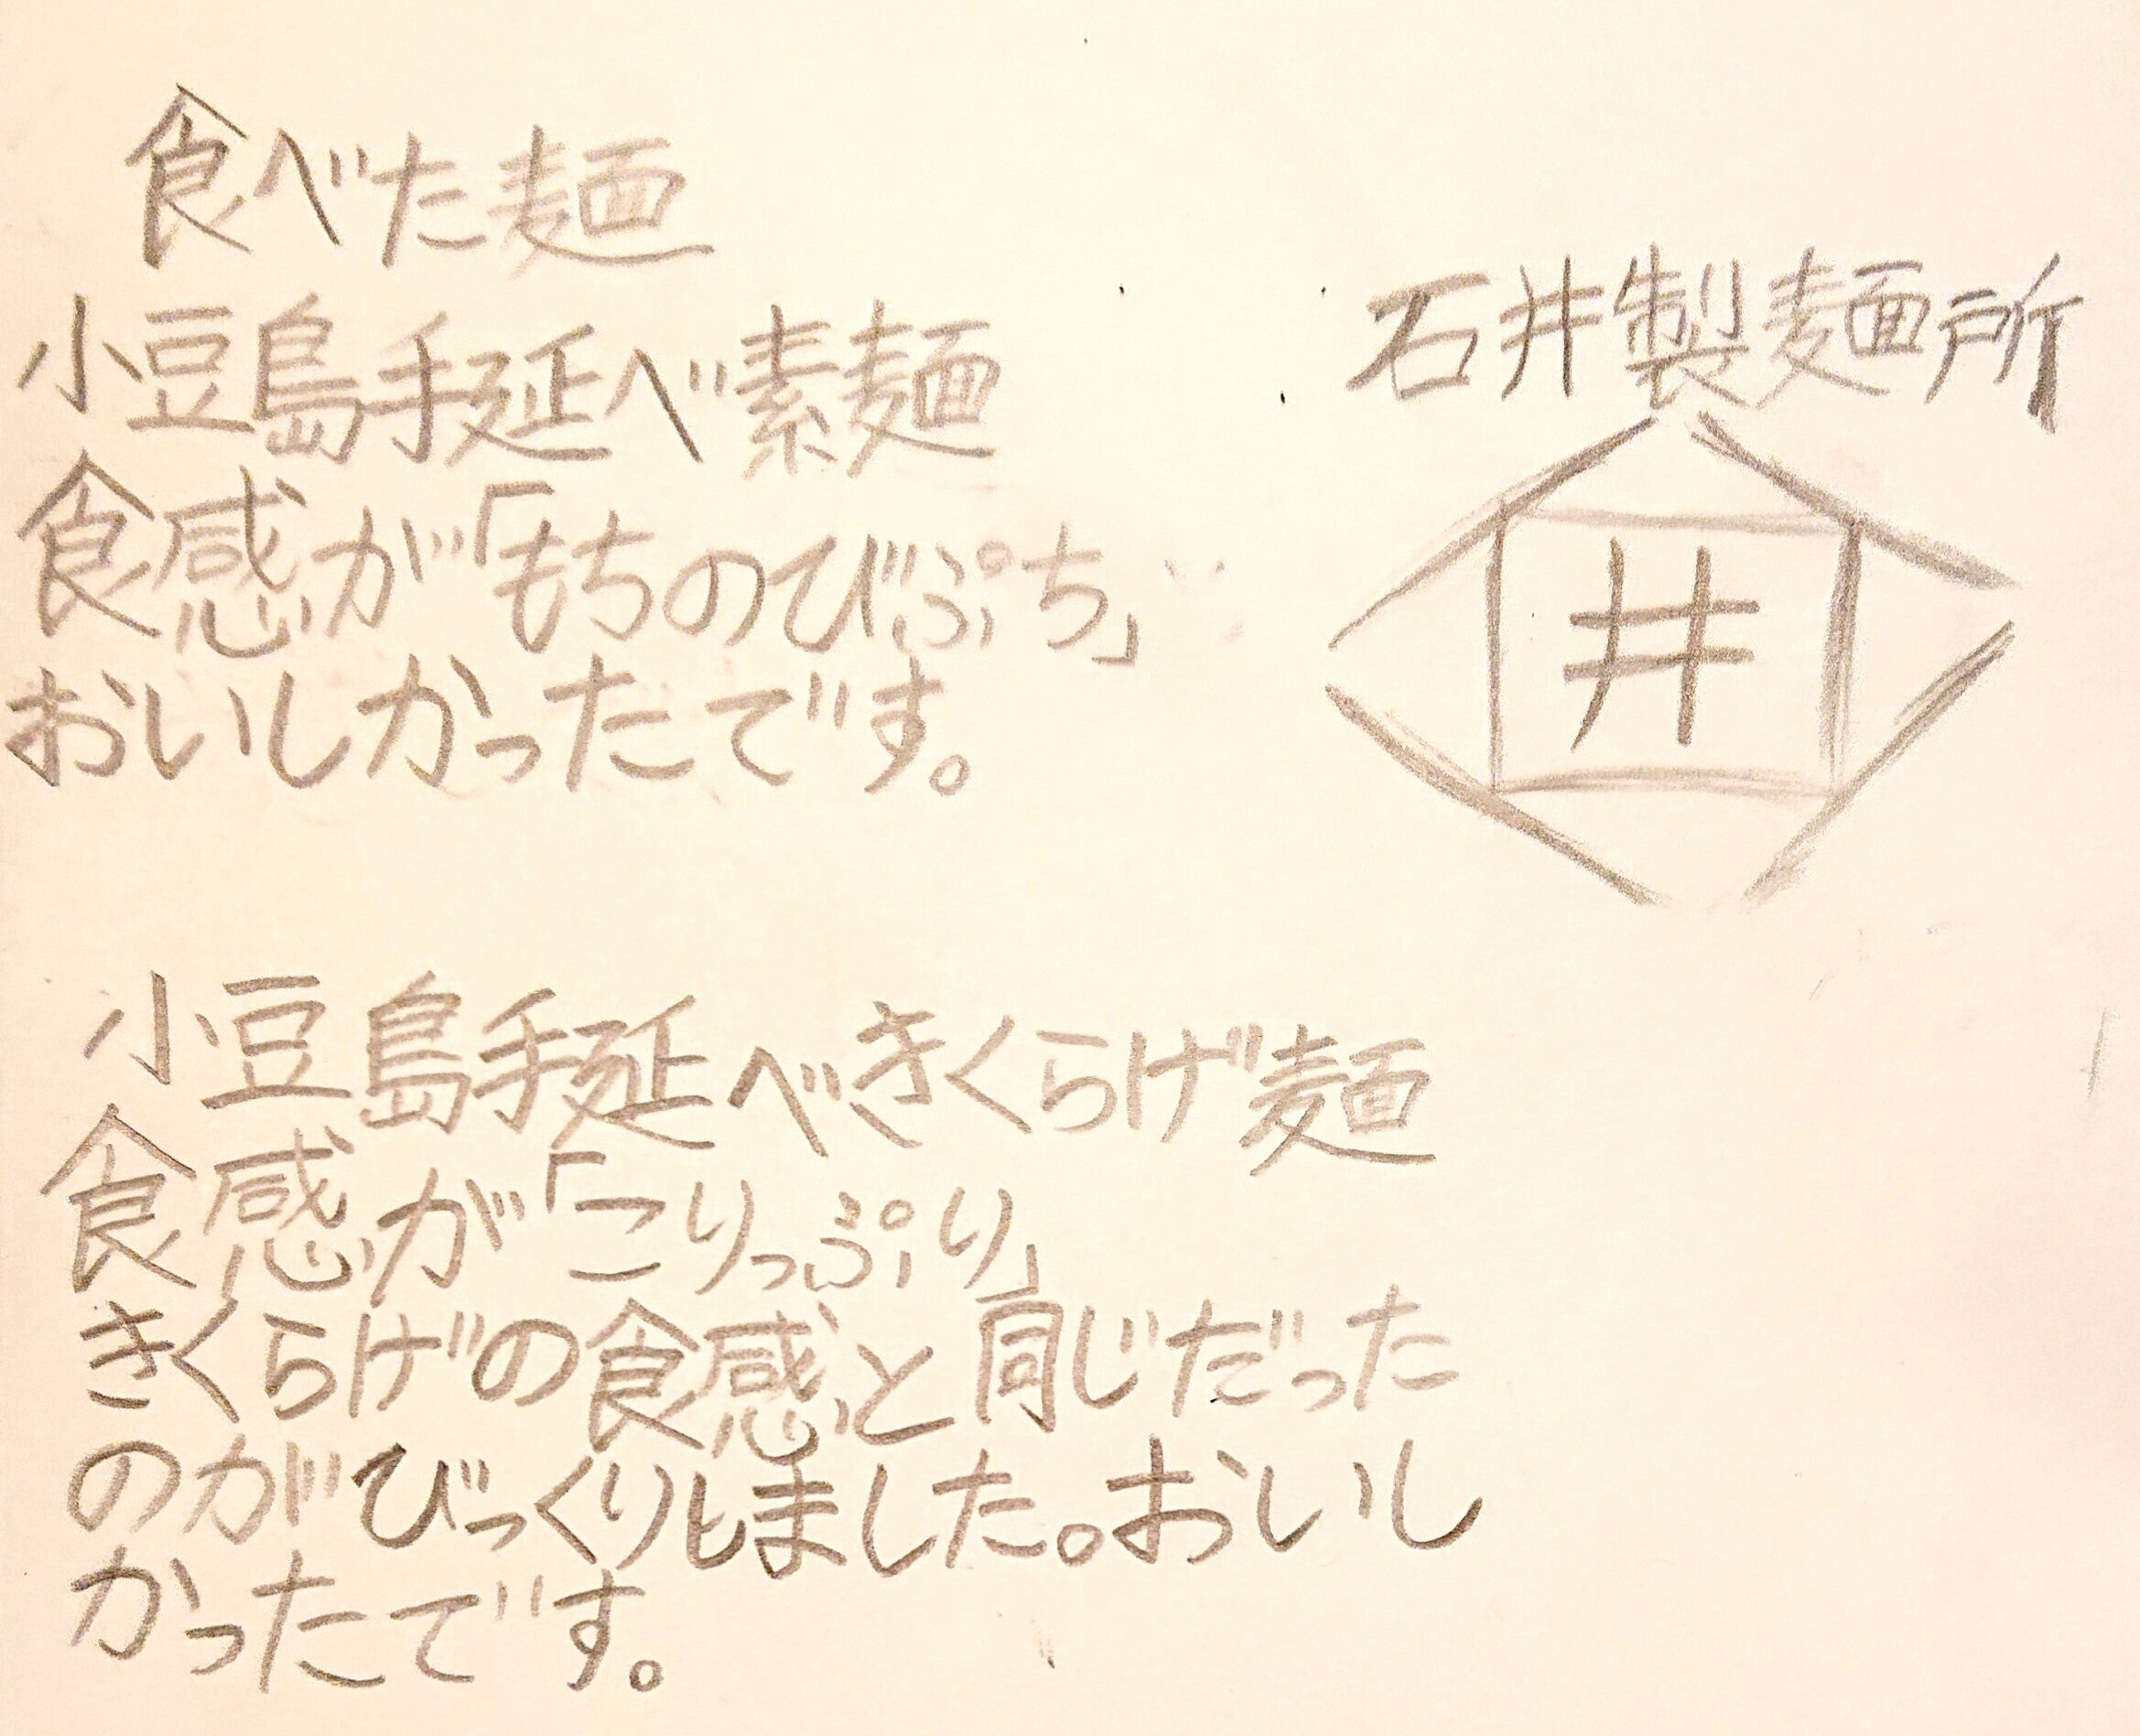 食べた麺
小豆島手延べ素麺
食感が「もちのびぷち」
おいしかったです。
石井製麺所
井
小豆島手延べきくらげ麺
食感が「こりっぷり」
きくらげの食感と同じだった
のがびっくりしました。おいし
かったです。